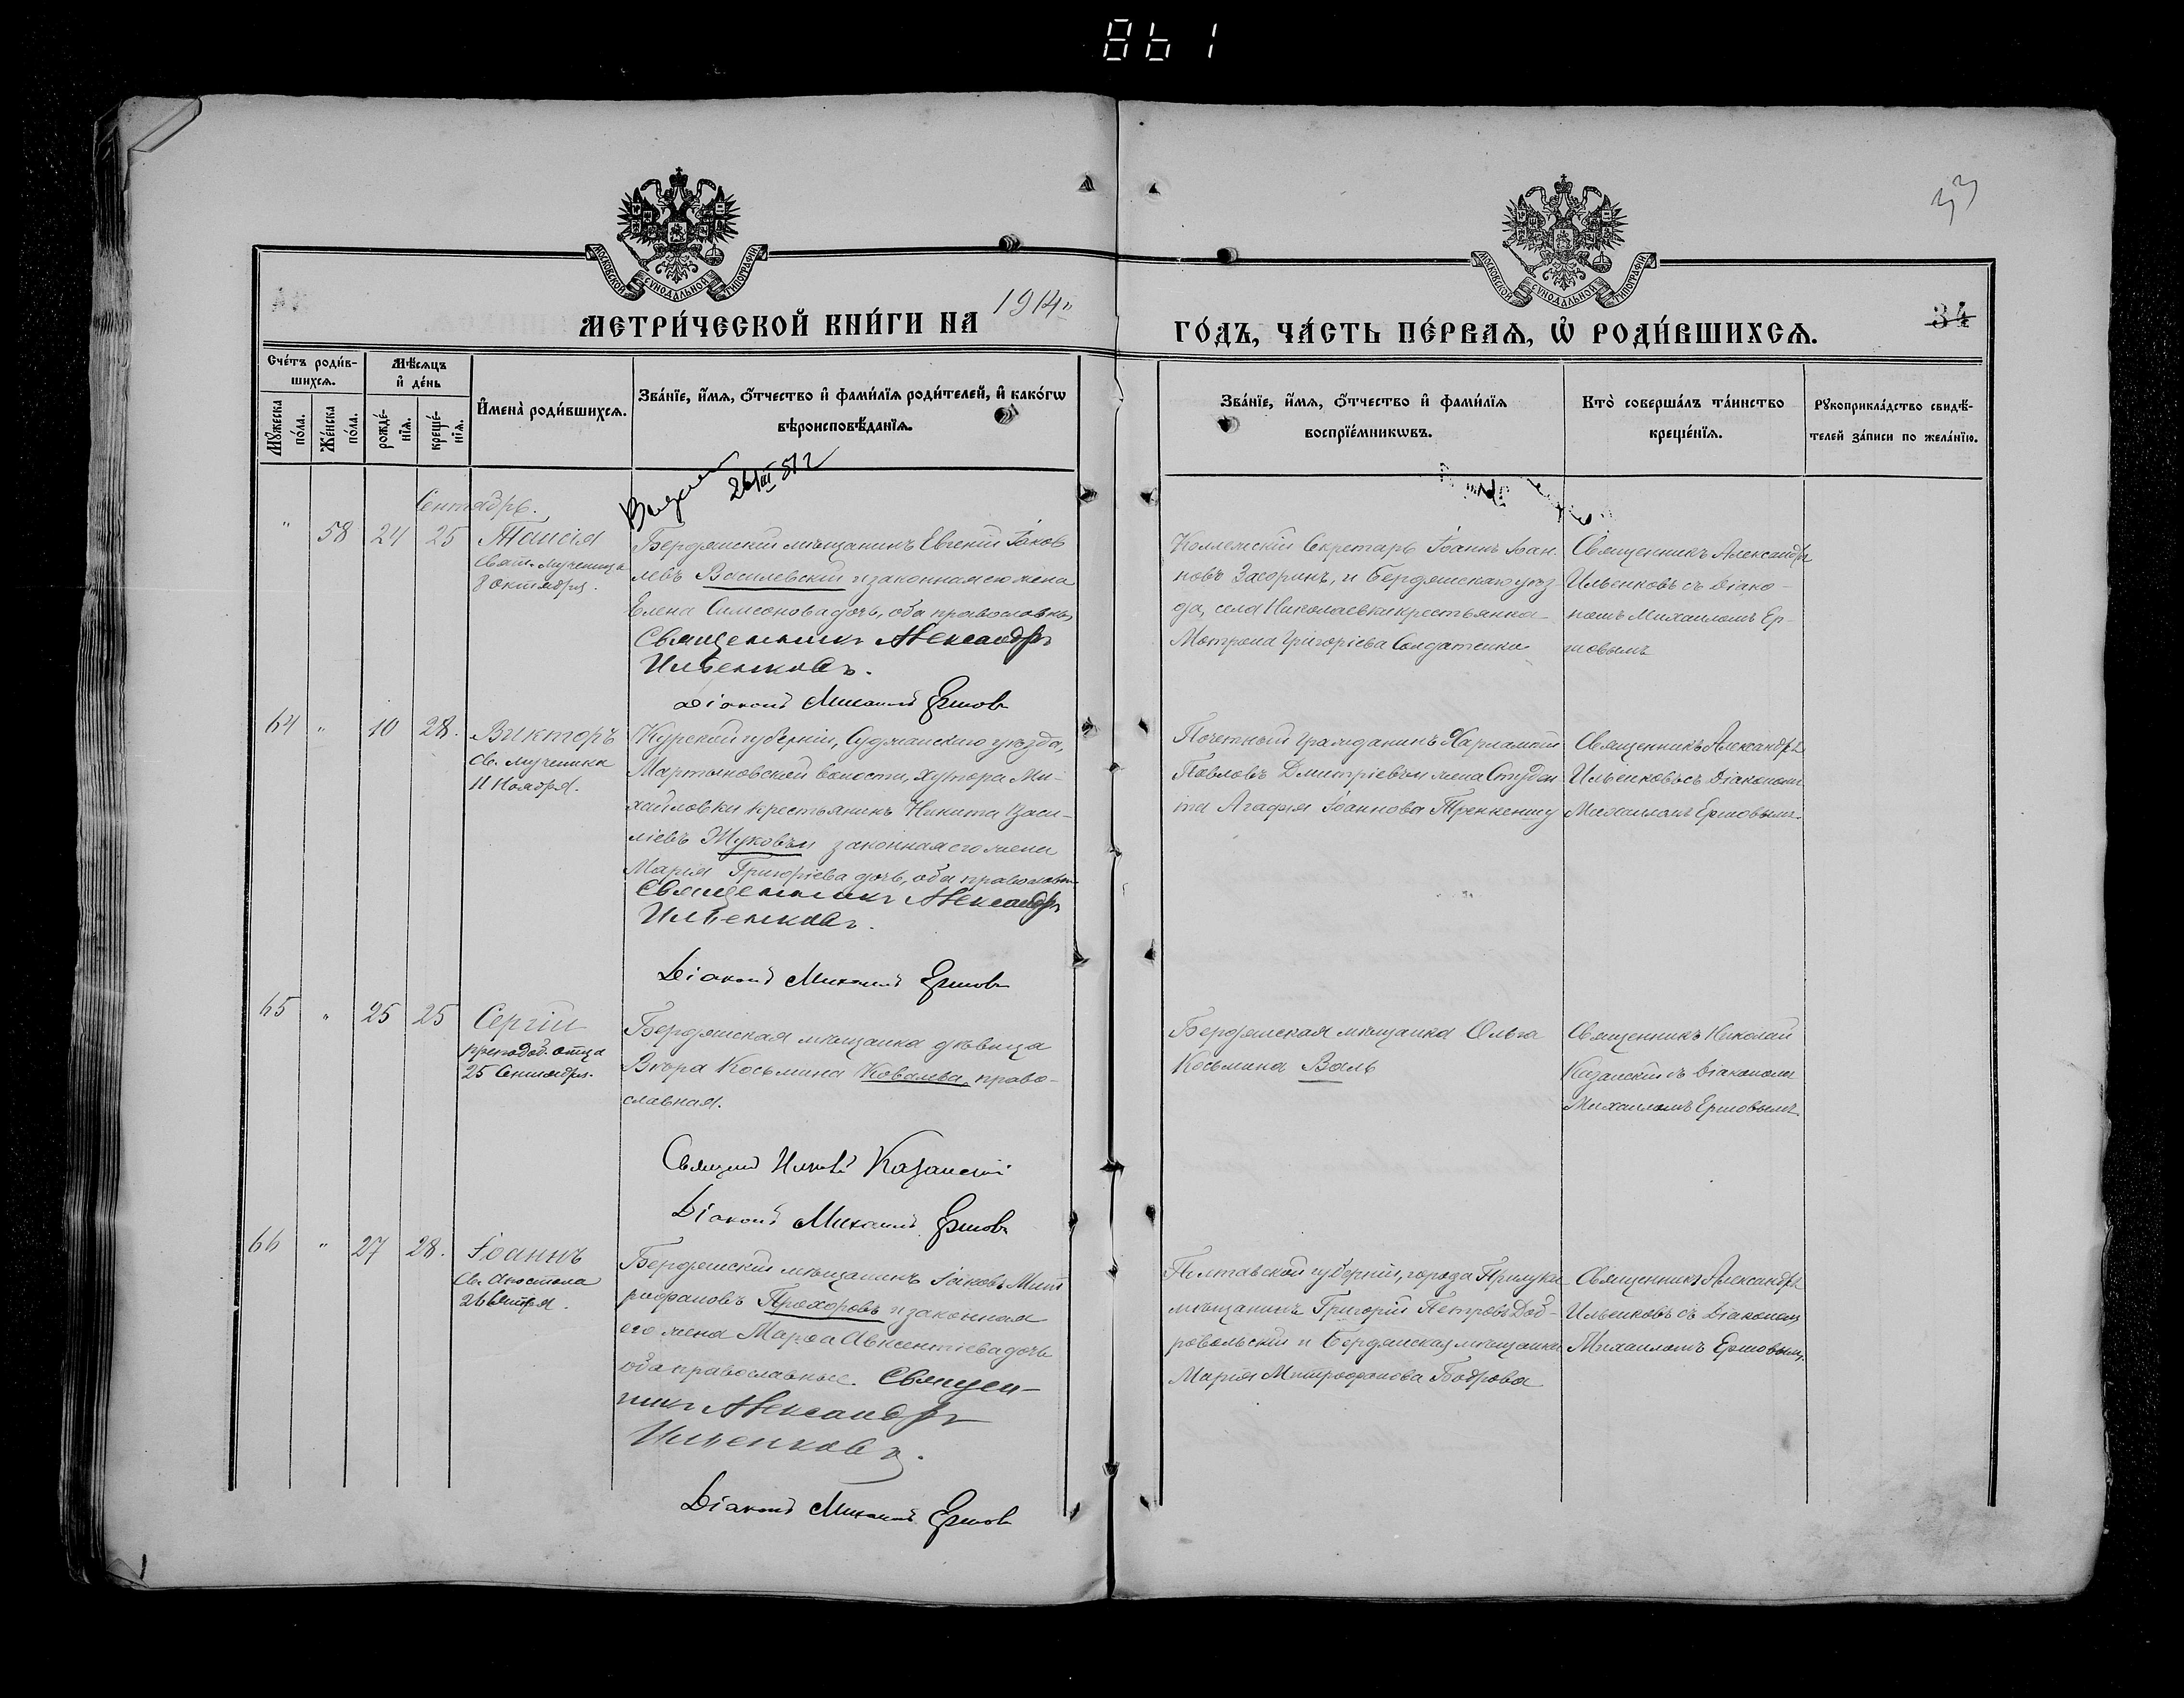 861
33
МОСКОВСКОЙ СУНОДАЛЬНОЙ ТИПОГРАФІИ
МОСКОВСКОЙ СУНОДАЛЬНОЙ ТИПОГРАФІИ
МЕТРИ́ЧЕСКОЙ КНИ́ГИ НА 1914
ГО́ДЪ, ЧА́СТЬ ПЕ́РВАЯ, Ѡ РОДИ́ВШИХСЯ.
34
Сче́тъ роди́в-
шихся.
Мѣ́сяцъ
и де́нь
Му́жеска
по́ла.
Же́нска
по́ла.
рожде́-
нїя.
креще́-
нїя.
Имена̀ роди́вшихся.
Зва́нїе, и́мя, ѻ́тчество и фами́лїя роди́телей, и како́гѡ
вѣроисповѣ́данїя.
Зва́нїе, и́мя, ѻ́тчество и фами́лїя
воспрїе́мникѡвъ.
Кто̀ соверша́лъ та́инство
креще́нїя.
Рукоприкла́дство свидѣ́-
телей за́писи по жела́нїю.
Сентябрь.
" 58 24 25 Таисія
свят. мученица
8 октября.
Бердянскій мѣщанинъ Евгеній Іаков
левъ Василевскій и законная его жена
Елена Симеонова дочь, оба православны
Священникъ Александръ
Ильенковъ.
Діаконъ Михаилъ Ершовъ
Коллежскій Секретарь Іоаннъ Іоан-
новъ Засоринъ, и Бердянскаго уѣз-
да, села Николаевки крестьянка
Мотрона Григоріева Солдатенки
Священникъ Александръ
Ильенковъ съ Діако-
номъ Михаиломъ Ер-
шовымъ
64 " 10 28. Викторъ
Св. мученика
11 Ноября.
Курской губерніи, Суджанскаго уѣзда,
Мартыновской волости, хутора Ми-
хайловки крестьянинъ Никита Васи-
ліевъ Жуковъ и законная его жена
Марія Григоріева дочь, оба православн
Священникъ Александръ
Ильенковъ.
Діаконъ Михаилъ Ершовъ
Почетный гражданинъ Харлампій
Павловъ Дмитріевъ и жена Студен
та Агафія Іоаннова
Священникъ Александръ
Ильенковъ съ Діакономъ
Михаиломъ Ершовымъ.
65 " 25 25 Сергій
преподоб. отца
25 Сентября.
Бердянская мѣщанка дѣвица
Вѣра Косьмина Ковалева, право-
славная.
Священ Николай Казанскій
Діаконъ Михаилъ Ершовъ
Бердянская мѣщанка Ольга
Косьмина Валь
Священникъ Николай
Казанскій съ Діакономъ
Михаиломъ Ершовымъ
66 " 27 28. Іоаннъ
Св. Апостола
26 Сентбря.
Бердянскій мѣщанинъ Іаковъ Мит
рофановъ Прохоровъ и законная
его жена Марѳа Авксентіева дочь
оба православные. Священ-
никъ Александръ
Ильенковъ.
Діаконъ Михаилъ Ершовъ
Полтавской губерніи, города Прилуки
мѣщанинъ Григорій Петровъ Доб-
ровольскій и Бердянская мѣщанка
Марія Митрофанова Бодрова
Священникъ Александръ
Ильенковъ съ Діакономъ
Михаиломъ Ершовымъ.